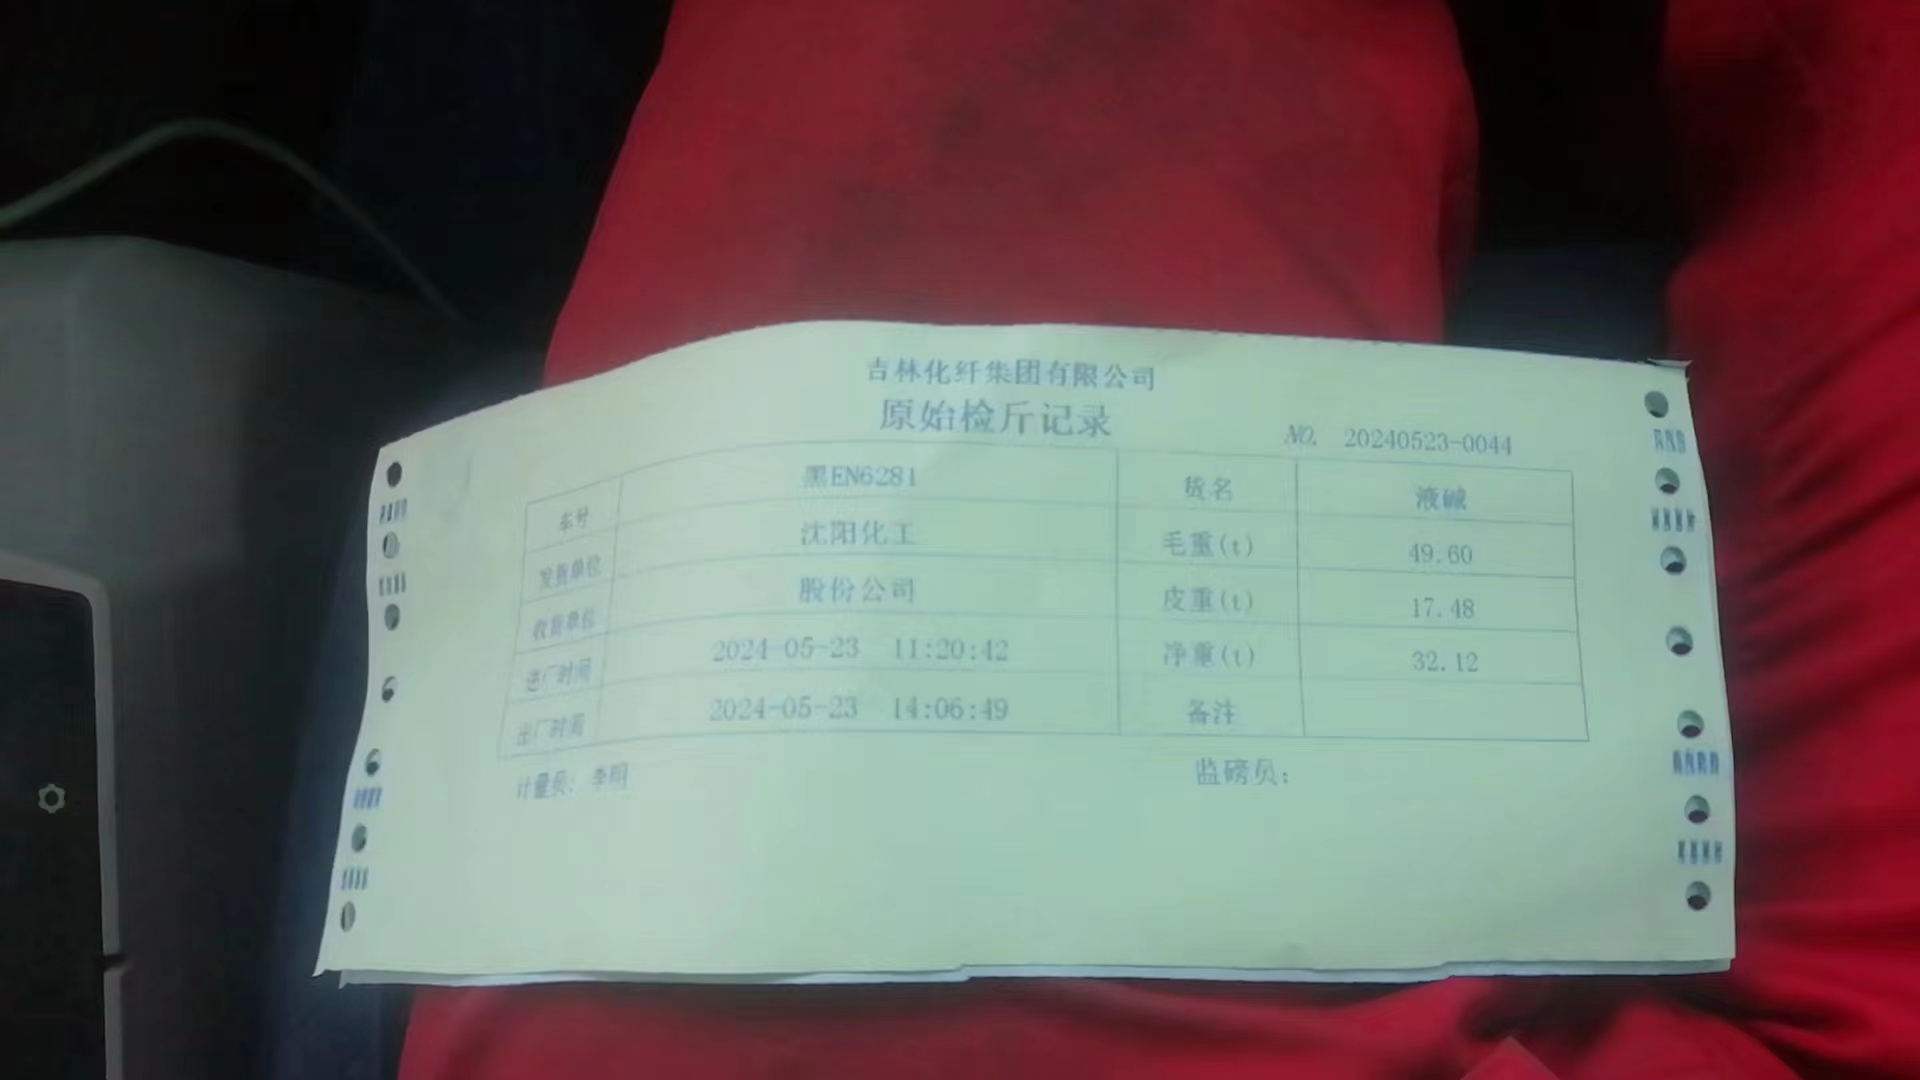 吉林化纤集团有限公司
原始检斤记录
NO. 20240523-0044
车号 黑EN6281 货名 液碱
发货单位 沈阳化工 毛重(t) 49.60
收货单位 股份公司 皮重(t) 17.48
进厂时间 2024-05-23 11:20:42 净重(t) 32.12
出厂时间 2024-05-23 14:06:49 备注
计量员: 李明 监磅员: